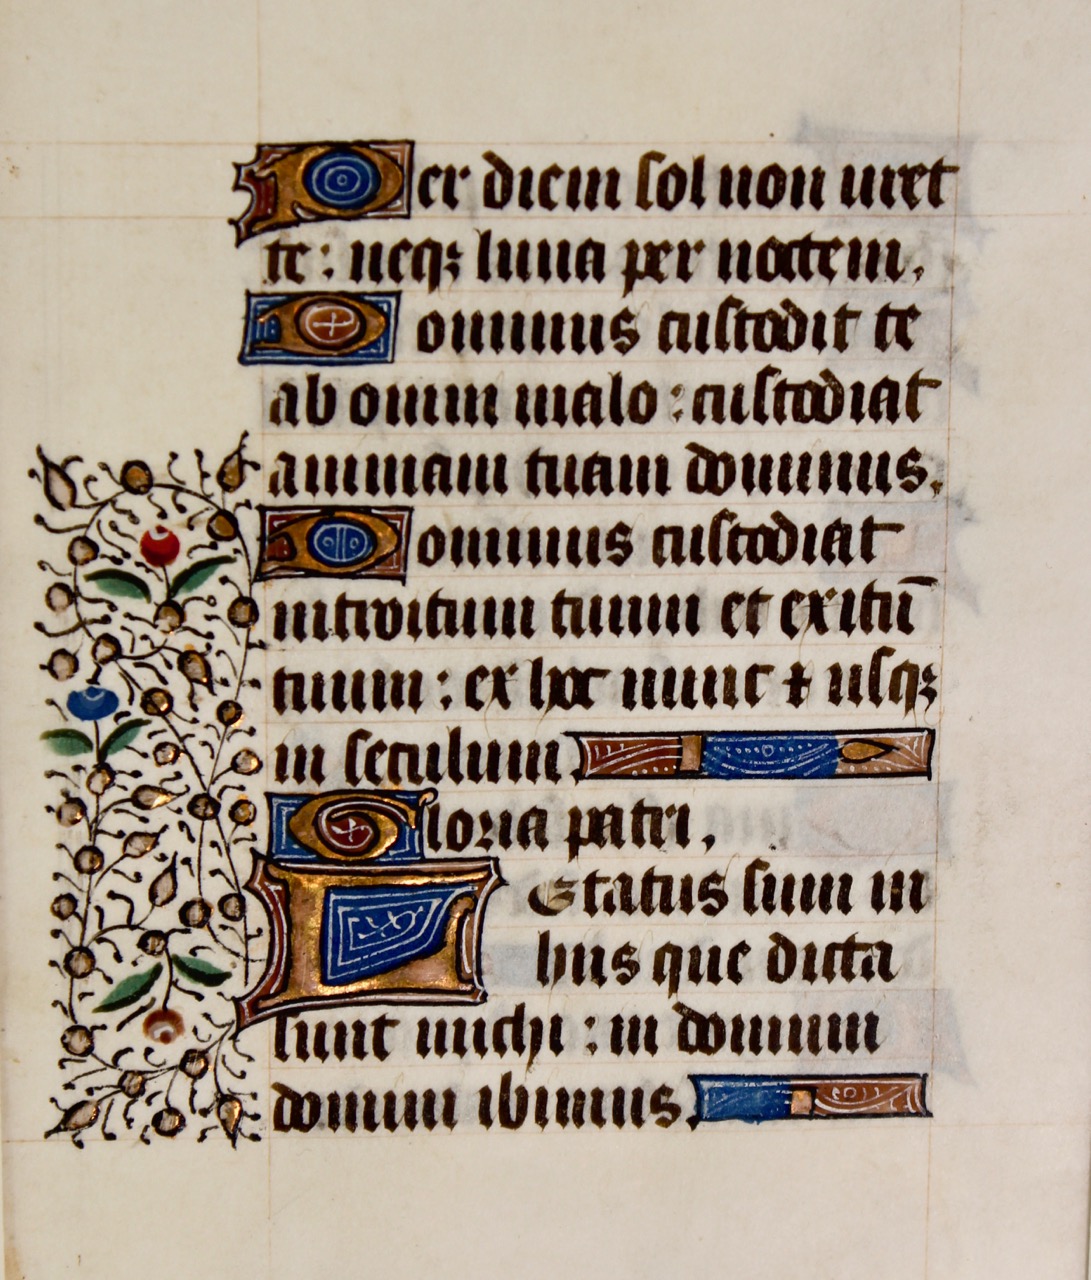 Per diem sol non uret
te : neqꝫ luna per noctem.
Dominus custodit te
ab omni malo : custodiat
animam tuam dominus.
Dominus custodiat
introitum tuum et exitū
tuum : ex hoc nunc ⁊ usqꝫ
in seculum.
Gloria patri.
Letatus sum in
hiis que dicta
sunt michi : in domum
domini ibimus.